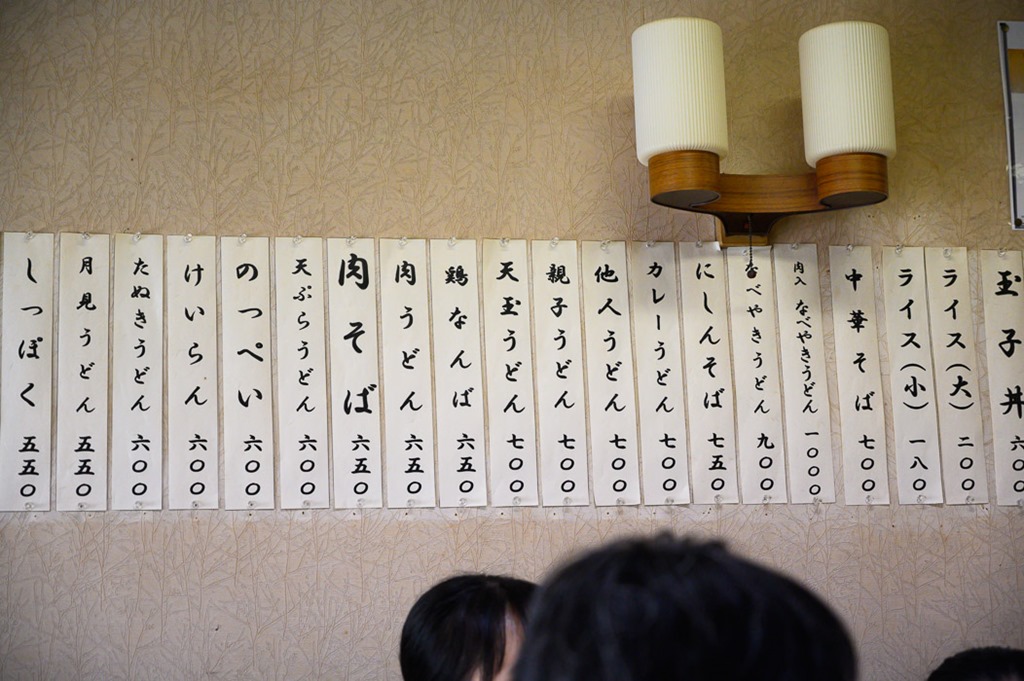 しっぽく 五五〇
月見うどん 五五〇
たぬきうどん 六〇〇
けいらん 六〇〇
のっぺい 六〇〇
天ぷらうどん 六〇〇
肉そば 六五〇
肉うどん 六〇〇
鶏なんば 六五〇
天玉うどん 七〇〇
親子うどん 七〇〇
他人うどん 七〇〇
カレーうどん 七〇〇
にしんそば 七五〇
なべやきうどん 九〇〇
肉入 なべやきうどん 一〇〇〇
中華そば 七〇〇
ライス(小) 一八〇
ライス(大) 二〇〇
玉子丼 六〇〇